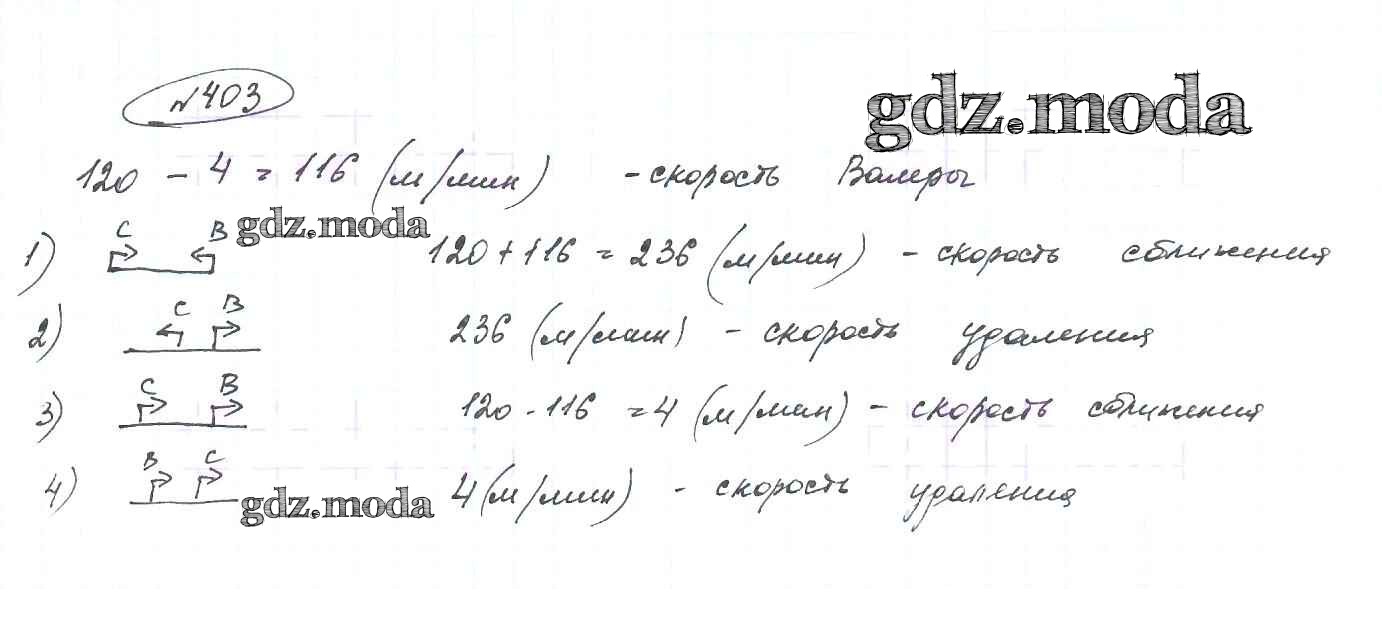 №403
gdz.moda
120 - 4 = 116 (м/мин) - скорость Валеры
gdz.moda
1) С В 120 + 116 = 236 (м/мин) - скорость сближения
2) С В 236 (м/мин) - скорость удаления
3) С В 120 - 116 = 4 (м/мин) - скорость сближения
4) В С 4 (м/мин) - скорость удаления
gdz.moda